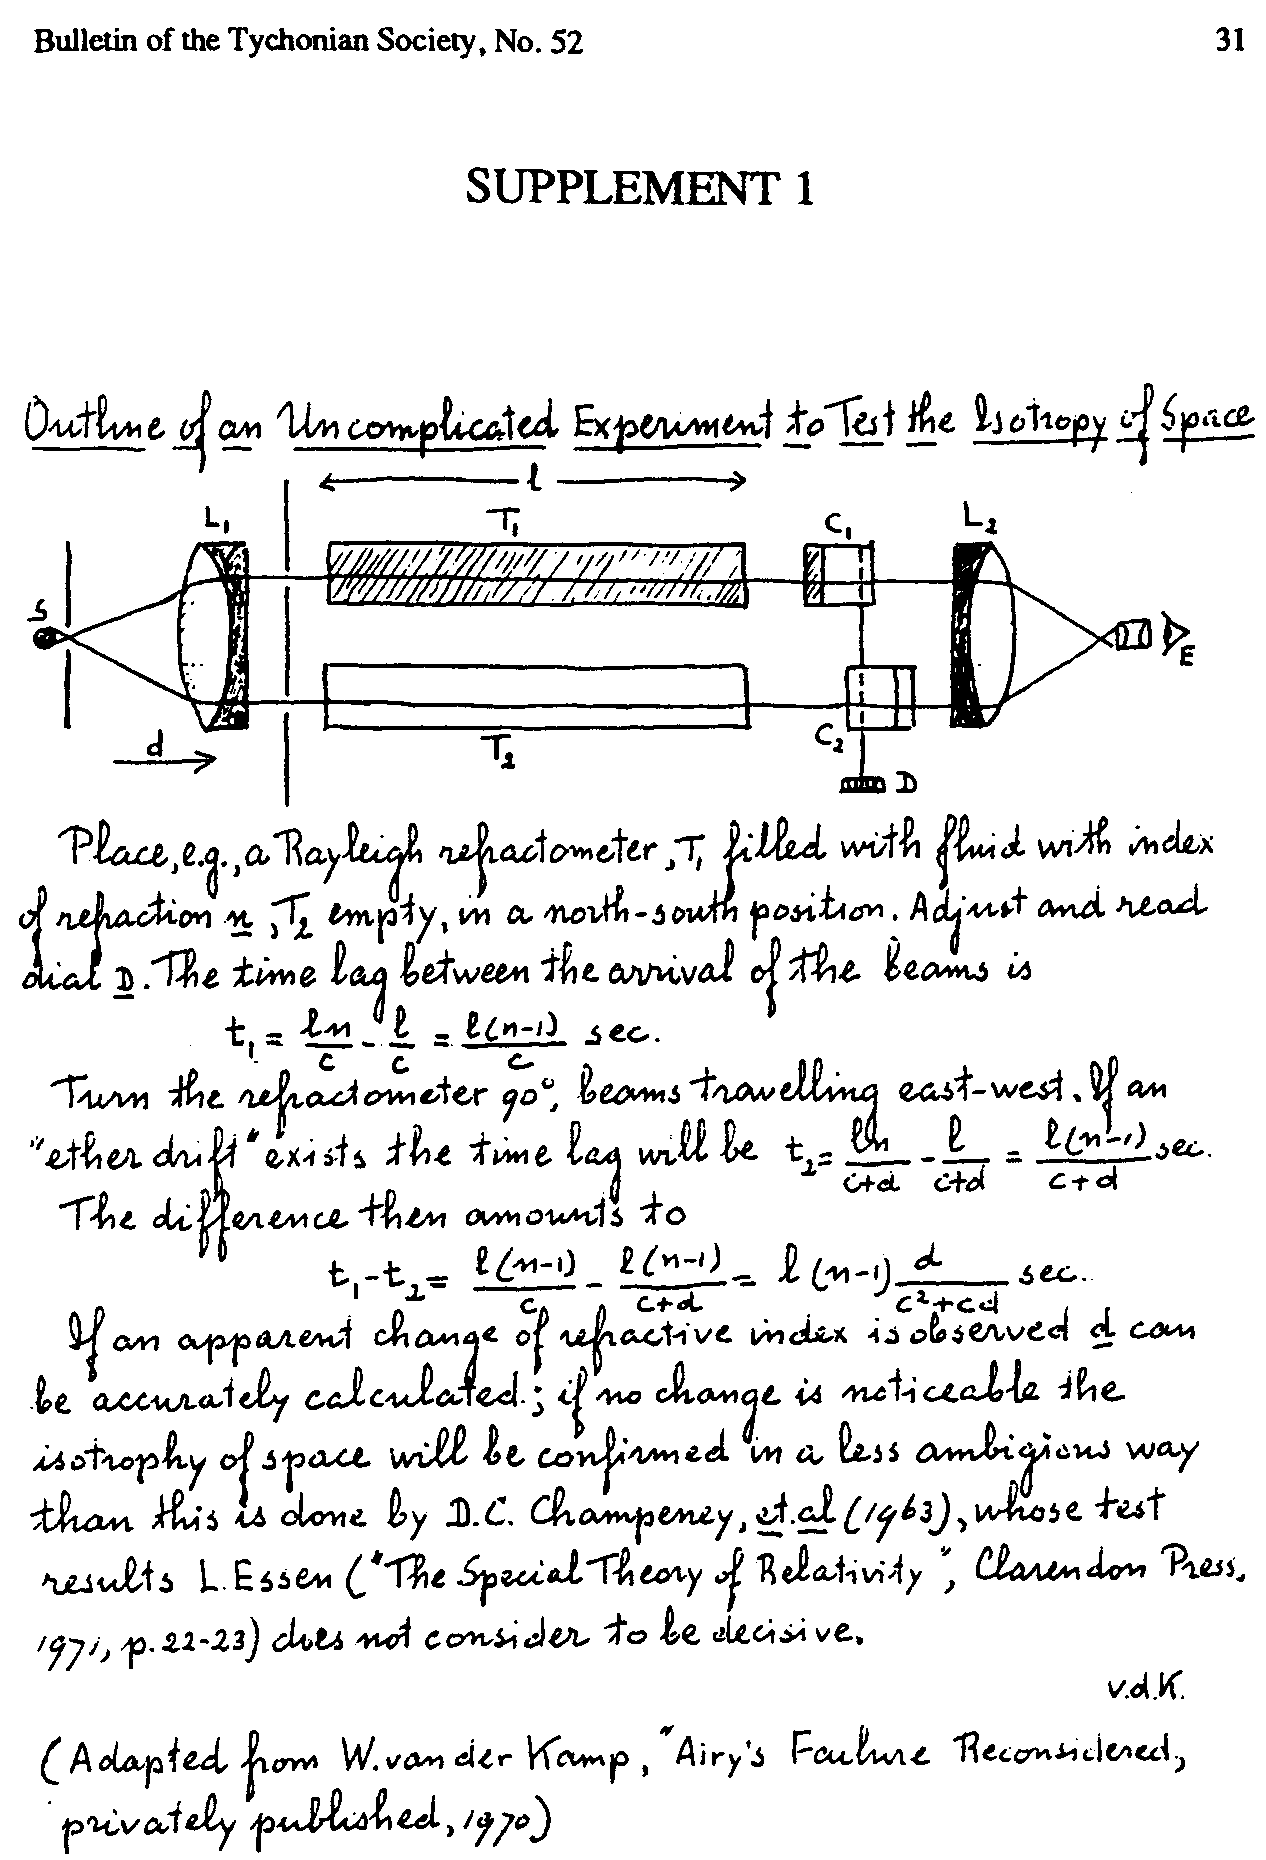 Bulletin of the Tychonian Society, No. 52 31
SUPPLEMENT 1
Outline of an Uncomplicated Experiment to Test the Isotropy of Space
l
L₁ T₁ C₁ L₂
S
E
d T₂ C₂
D
Place, e.g., a Rayleigh refractometer, T₁ filled with fluid with index
of refraction n, T₂ empty, in a north-south position. Adjust and read
dial D. The time lag between the arrival of the beams is
t₁ = ln/c - l/c = l(n-1)/c sec.
Turn the refractometer 90°, beams travelling east-west. If an
"ether drift" exists the time lag will be t₂ = ln/c+d - l/c+d = l(n-1)/c+d sec.
The difference then amounts to
t₁-t₂ = l(n-1)/c - l(n-1)/c+d = l(n-1) d/c²+cd sec.
If an apparent change of refractive index is observed d can
be accurately calculated; if no change is noticeable the
isotrophy of space will be confirmed in a less ambigious way
than this is done by D.C. Champeney, et.al (1963), whose test
results L. Essen ("The Special Theory of Relativity", Clarendon Press,
1971, p. 22-23) does not consider to be decisive.
v.d.K.
(Adapted from W. van der Kamp, "Airy's Failure Reconsidered,
privately published, 1970)